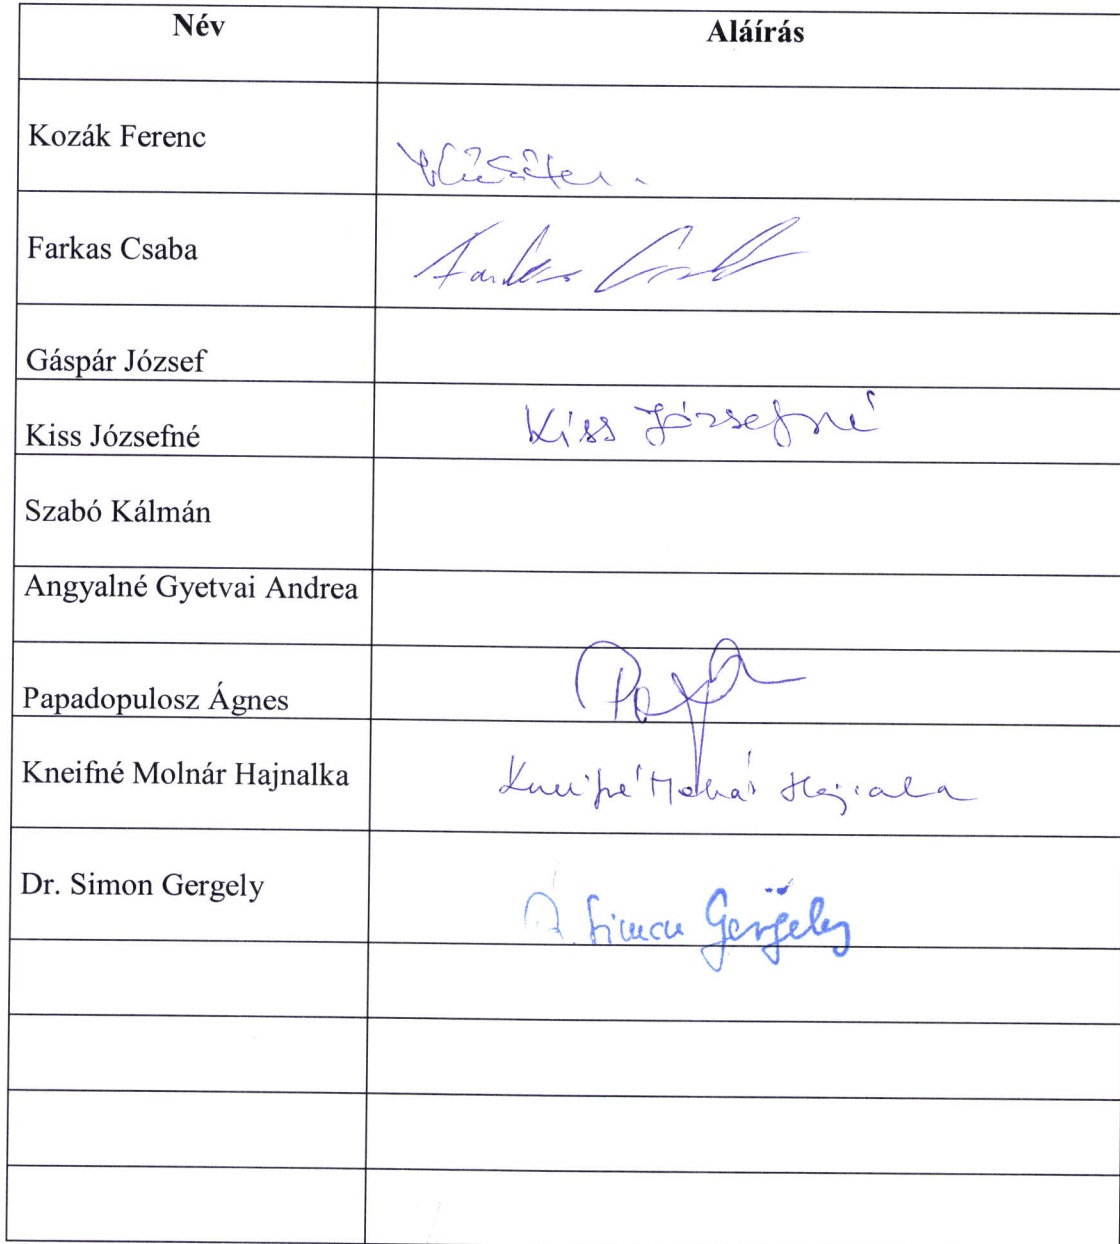 Név
Aláírás
Kozák Ferenc
Farkas Csaba
Farkas Csaba
Gáspár József
Kiss Józsefné
Kiss Józsefné
Szabó Kálmán
Angyalné Gyetvai Andrea
Papadopulosz Ágnes
Kneifné Molnár Hajnalka
Kneifné Molnár Hajnalka
Dr. Simon Gergely
Dr. Simon Gergely